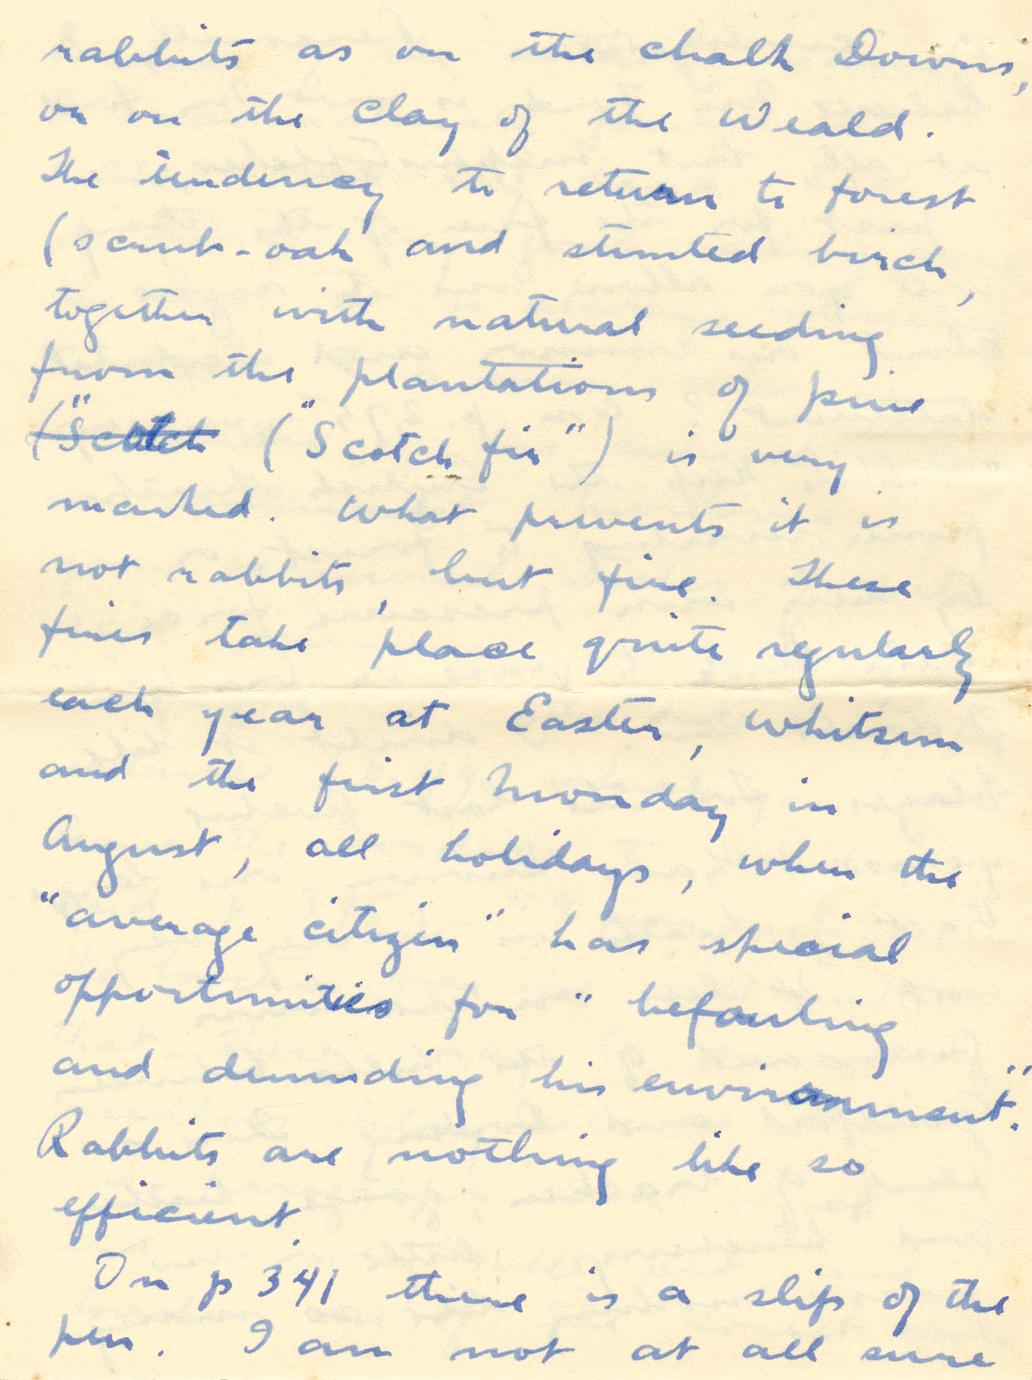 rabbits as on the chalk Downs,
or on the clay of the Weald.
The tendency to return to forest
(scrub-oak and stunted birch,
together with natural seeding
from the plantations of pine
("Scotch ("Scotch fir") is very
marked. What prevents it is
not rabbits, but fire. These
fires take place quite regularly
each year at Easter, Whitsun
and the first Monday in
August, all holidays, when the
"average citizen" has special
opportunities for "befouling
and denuding his environment."
Rabbits are nothing like so
efficient.
On p 341 there is a slip of the
pen. I am not at all sure